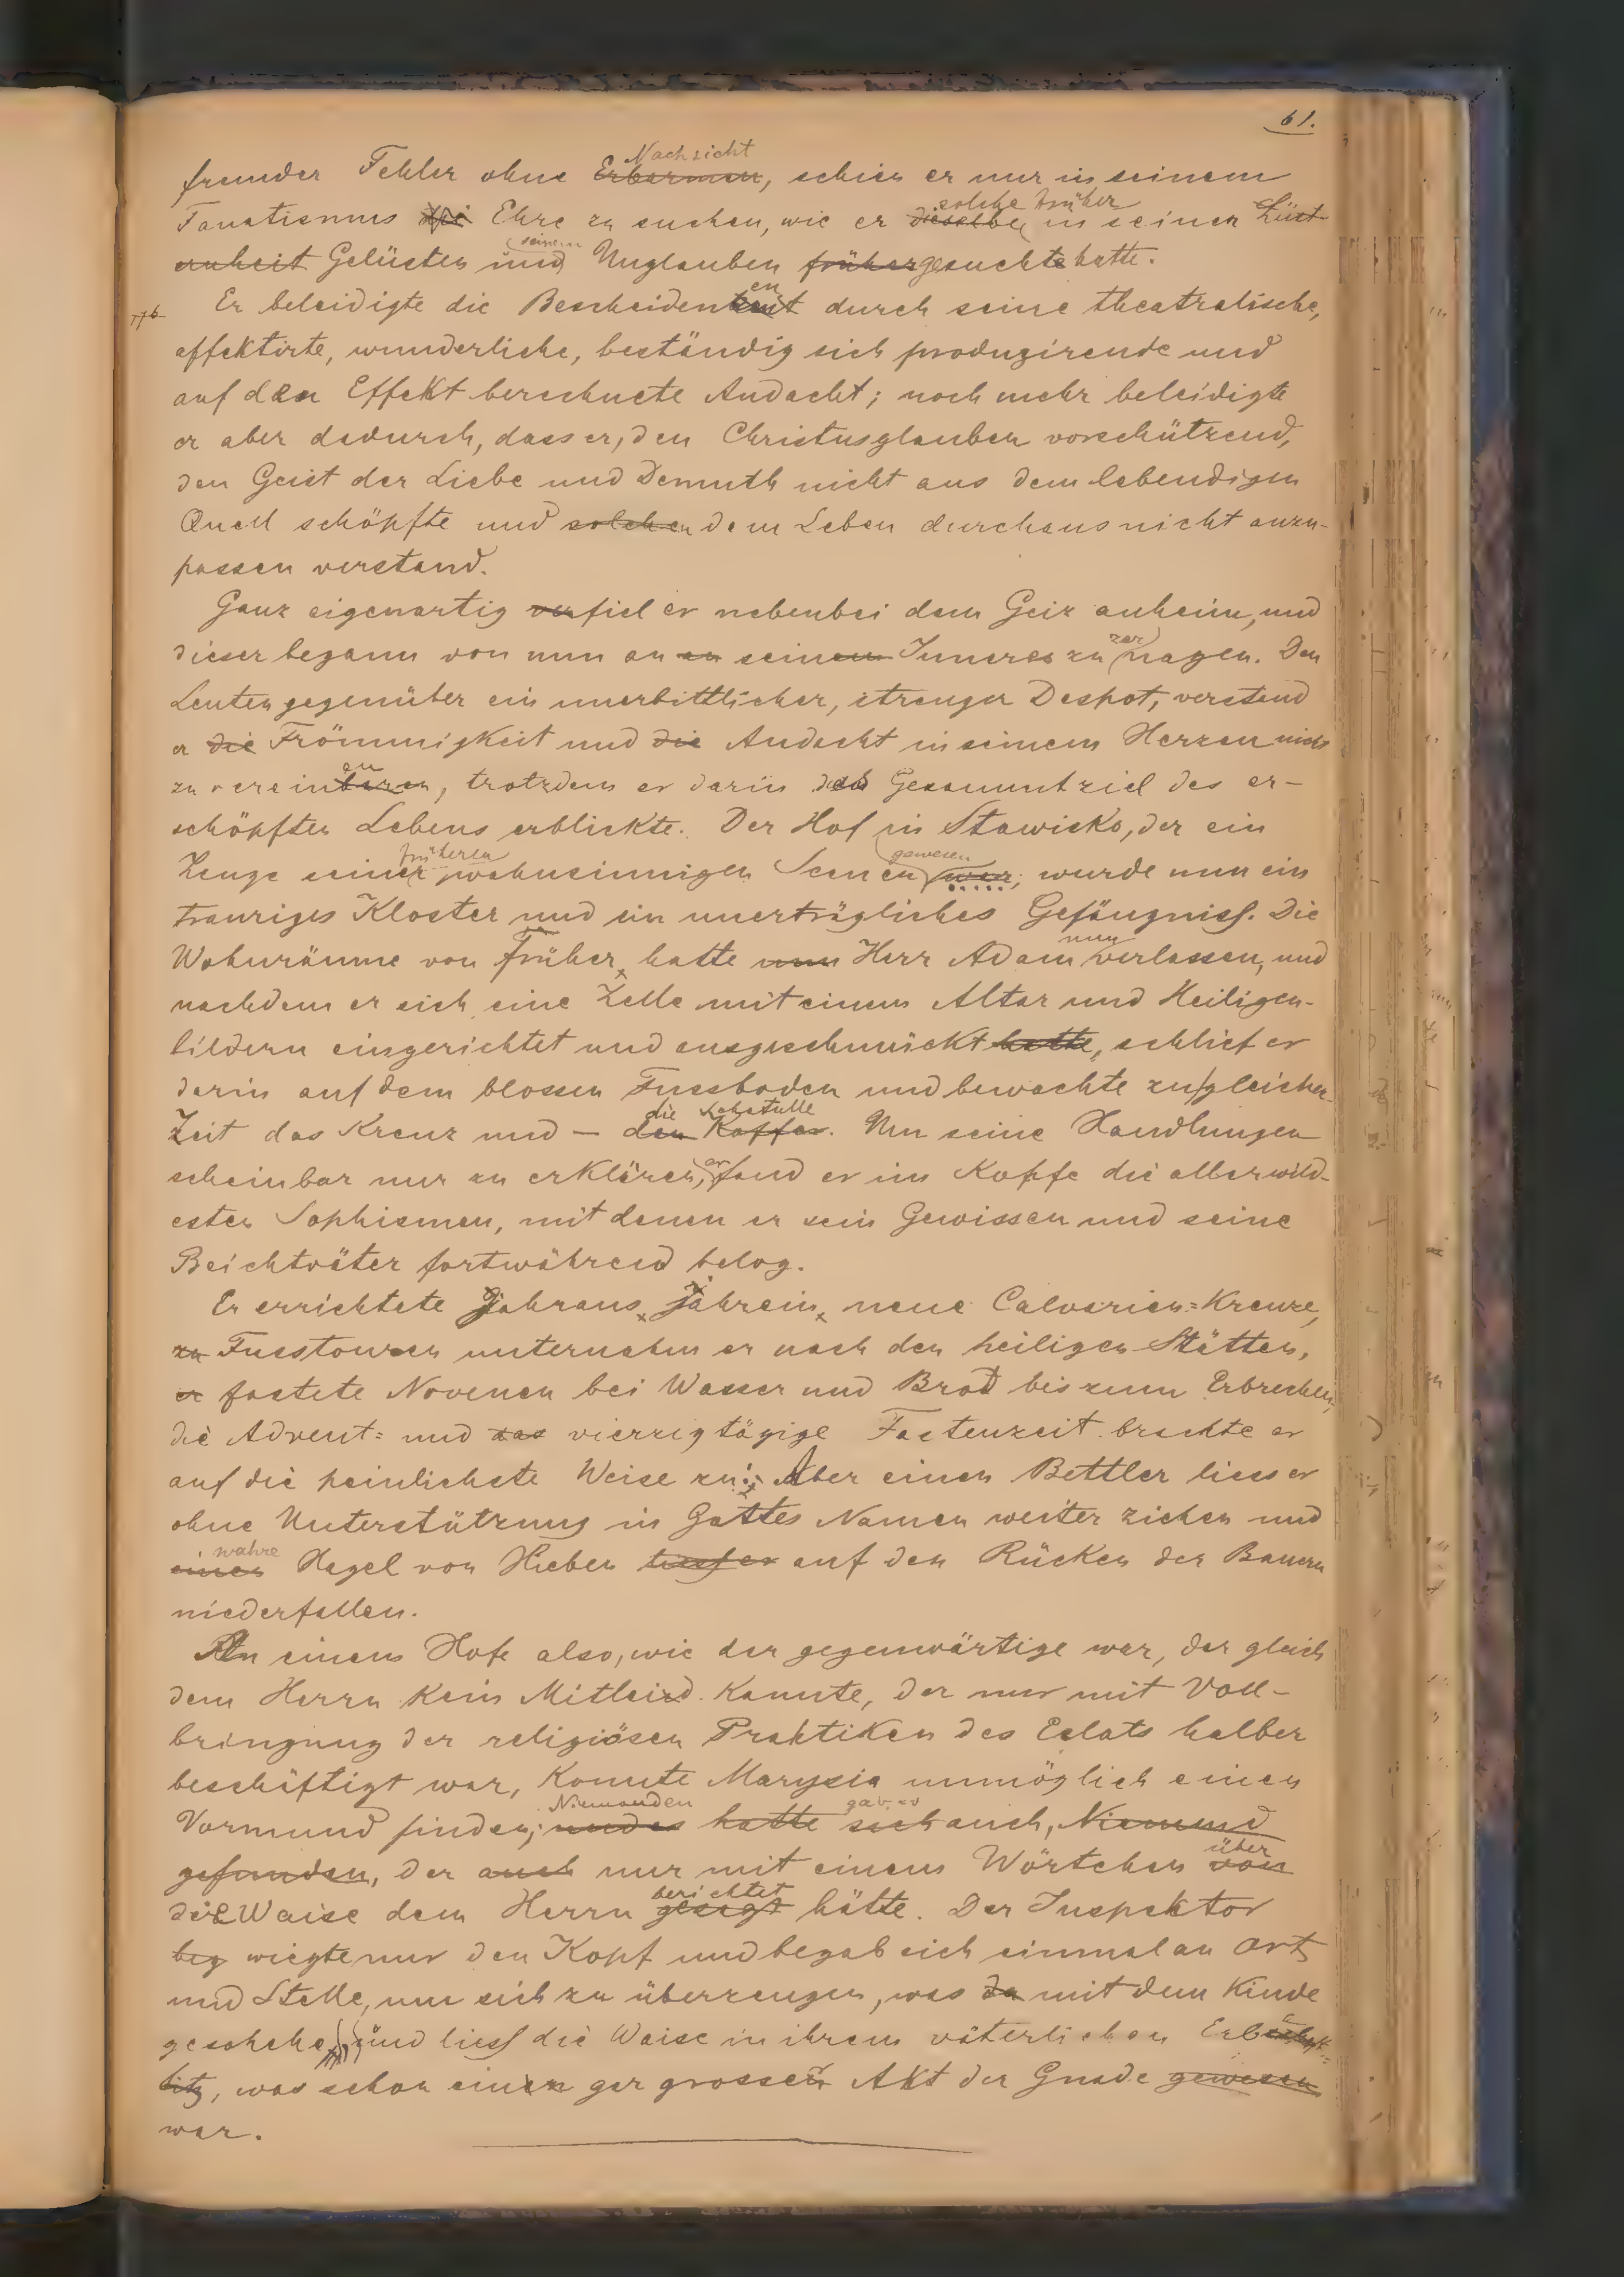 61.
Nachsicht
fremder Fehler ohne Erbarmen, schien er nur in seinem
solche früher
Fanatismus die Ehre zu suchen, wie er dieselbe in seinen Lüst-
seinem
ernheit Gelüsten und Unglauben früher gesuchte hatte.
en
Er beleidigte die Bescheidenheit durch seine theatralische,
affektirte, wunderliche, beständig sich produzirende und
auf den Effekt berechnete Andacht; noch mehr beleidigte
er aber dadurch, dass er, den Christusglauben vorschützend,
den Geist der Liebe und Demuth nicht aus dem lebendigen
Quell schöpfte und solchen dem Leben durchaus nicht anzu-
passen verstand.
Ganz eigenartig verfiel er nebenbei dem Geiz anheim, und
zer
dieser begann von nun an an seinem Inneres zu nagen. Den
Leuten gegenüber ein unerbittlicher, strenger Despot, verstand
er die Frömmigkeit und die Andacht in seinem Herzen nicht
en
zu vereinbaren, trotzdem er darin das Gesammtziel des er-
schöpften Lebens erblickte. Der Hof in Stawisko, der ein
früheren gewesen
Zeuge seiner wahnsinnigen Scenen war, wurde nun ein
trauriges Kloster und ein unerträgliches Gefängniss. Die
nun
Wohnräume von früher hatte nun Herr Adam verlassen, und
nachdem er sich eine Zelle mit einem Altar und Heiligen-
bildern eingerichtet und ausgeschmückt hatte, schlief er
darin auf dem blossen Fussboden und bewachte zu gleicher
die Schatulle
Zeit das Kreuz und — den Koffer. Um seine Handlungen
er
scheinbar nur zu erklären, fand er im Kopfe die allerwild-
esten Sophismen, mit denen er sein Gewissen und seine
Beichtväter fortwährend belog.
Er errichtete Jahraus, Jahrein, neue Calvarien=Kreuze,
zu Fusstouren unternahm er nach den heiligen Stätten,
er fastete Novenen bei Wasser und Brod bis zum Erbrechen,
die Advent= und das vierzigtägige Fastenzeit brachte er
auf die peinlichste Weise zu; Aber einen Bettler liess er
ohne Unterstützung in Gottes Namen weiter ziehen und
wahre
einen Hagel von Hieben liess er auf den Rücken der Bauern
niederfallen.
An einem Hofe also, wie der gegenwärtige war, der gleich
dem Herrn kein Mitleid kannte, der nur mit Voll-
bringung der religiösen Praktiken des Eclats halber
beschäftigt war, konnte Marysia unmöglich einen
Niemanden gab es
Vormund finden; und es hatte sich auch, Niemand
über
gefunden, der auch nur mit einem Wörtchen von
berichtet
die Waise dem Herrn gesagt hätte. Der Inspektor
beg wiegte nur den Kopf und begab sich einmal an Ort
und Stelle, um sich zu überzeugen, was da mit dem Kinde
geschehe, und liess die Waise in ihrem väterlichen
, was schon einen gar grossen Akt der Gnade gewesen
war.